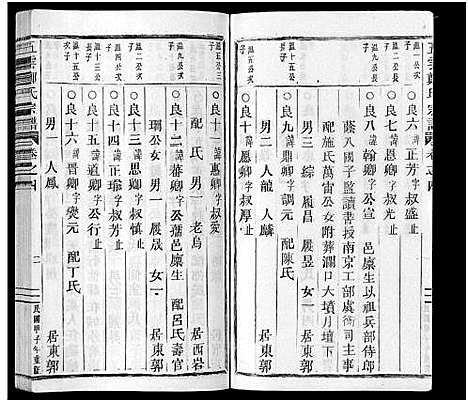 五雲鄭氏宗譜 卷之四
良六 諱正芳 字叔盛 止
良七 諱恩卿 字叔光 止
良八 諱翰卿 字公宣 邑庠生以祖兵部侍郎
蔭入國子監讀書授南京工部虞衡司主事
配施氏萬宙公女附葬瀾口大墳月墳下
男三 綜 履昌 履昱 女一 居東郭
良九 諱鼎卿 字調元 配陳氏
男二 人龍 人麟
良十 諱恩卿 字叔厚 止
良十一 諱 字叔愛
配 氏 男一 老烏 居西岩
良十二 諱蕃卿 字公 邑庠生 配呂氏壽官
瑚公女 男一 履晟 女一 居東郭
良十三 諱思卿 字叔慎 止
良十四 諱正珍 字叔芳 止
良十五 諱道卿 字公行 止
良十六 諱晋卿 字爕元 配丁氏
男一 人鳳 居東郭
五雲鄭氏宗譜 卷之四
二
民國甲子年重修